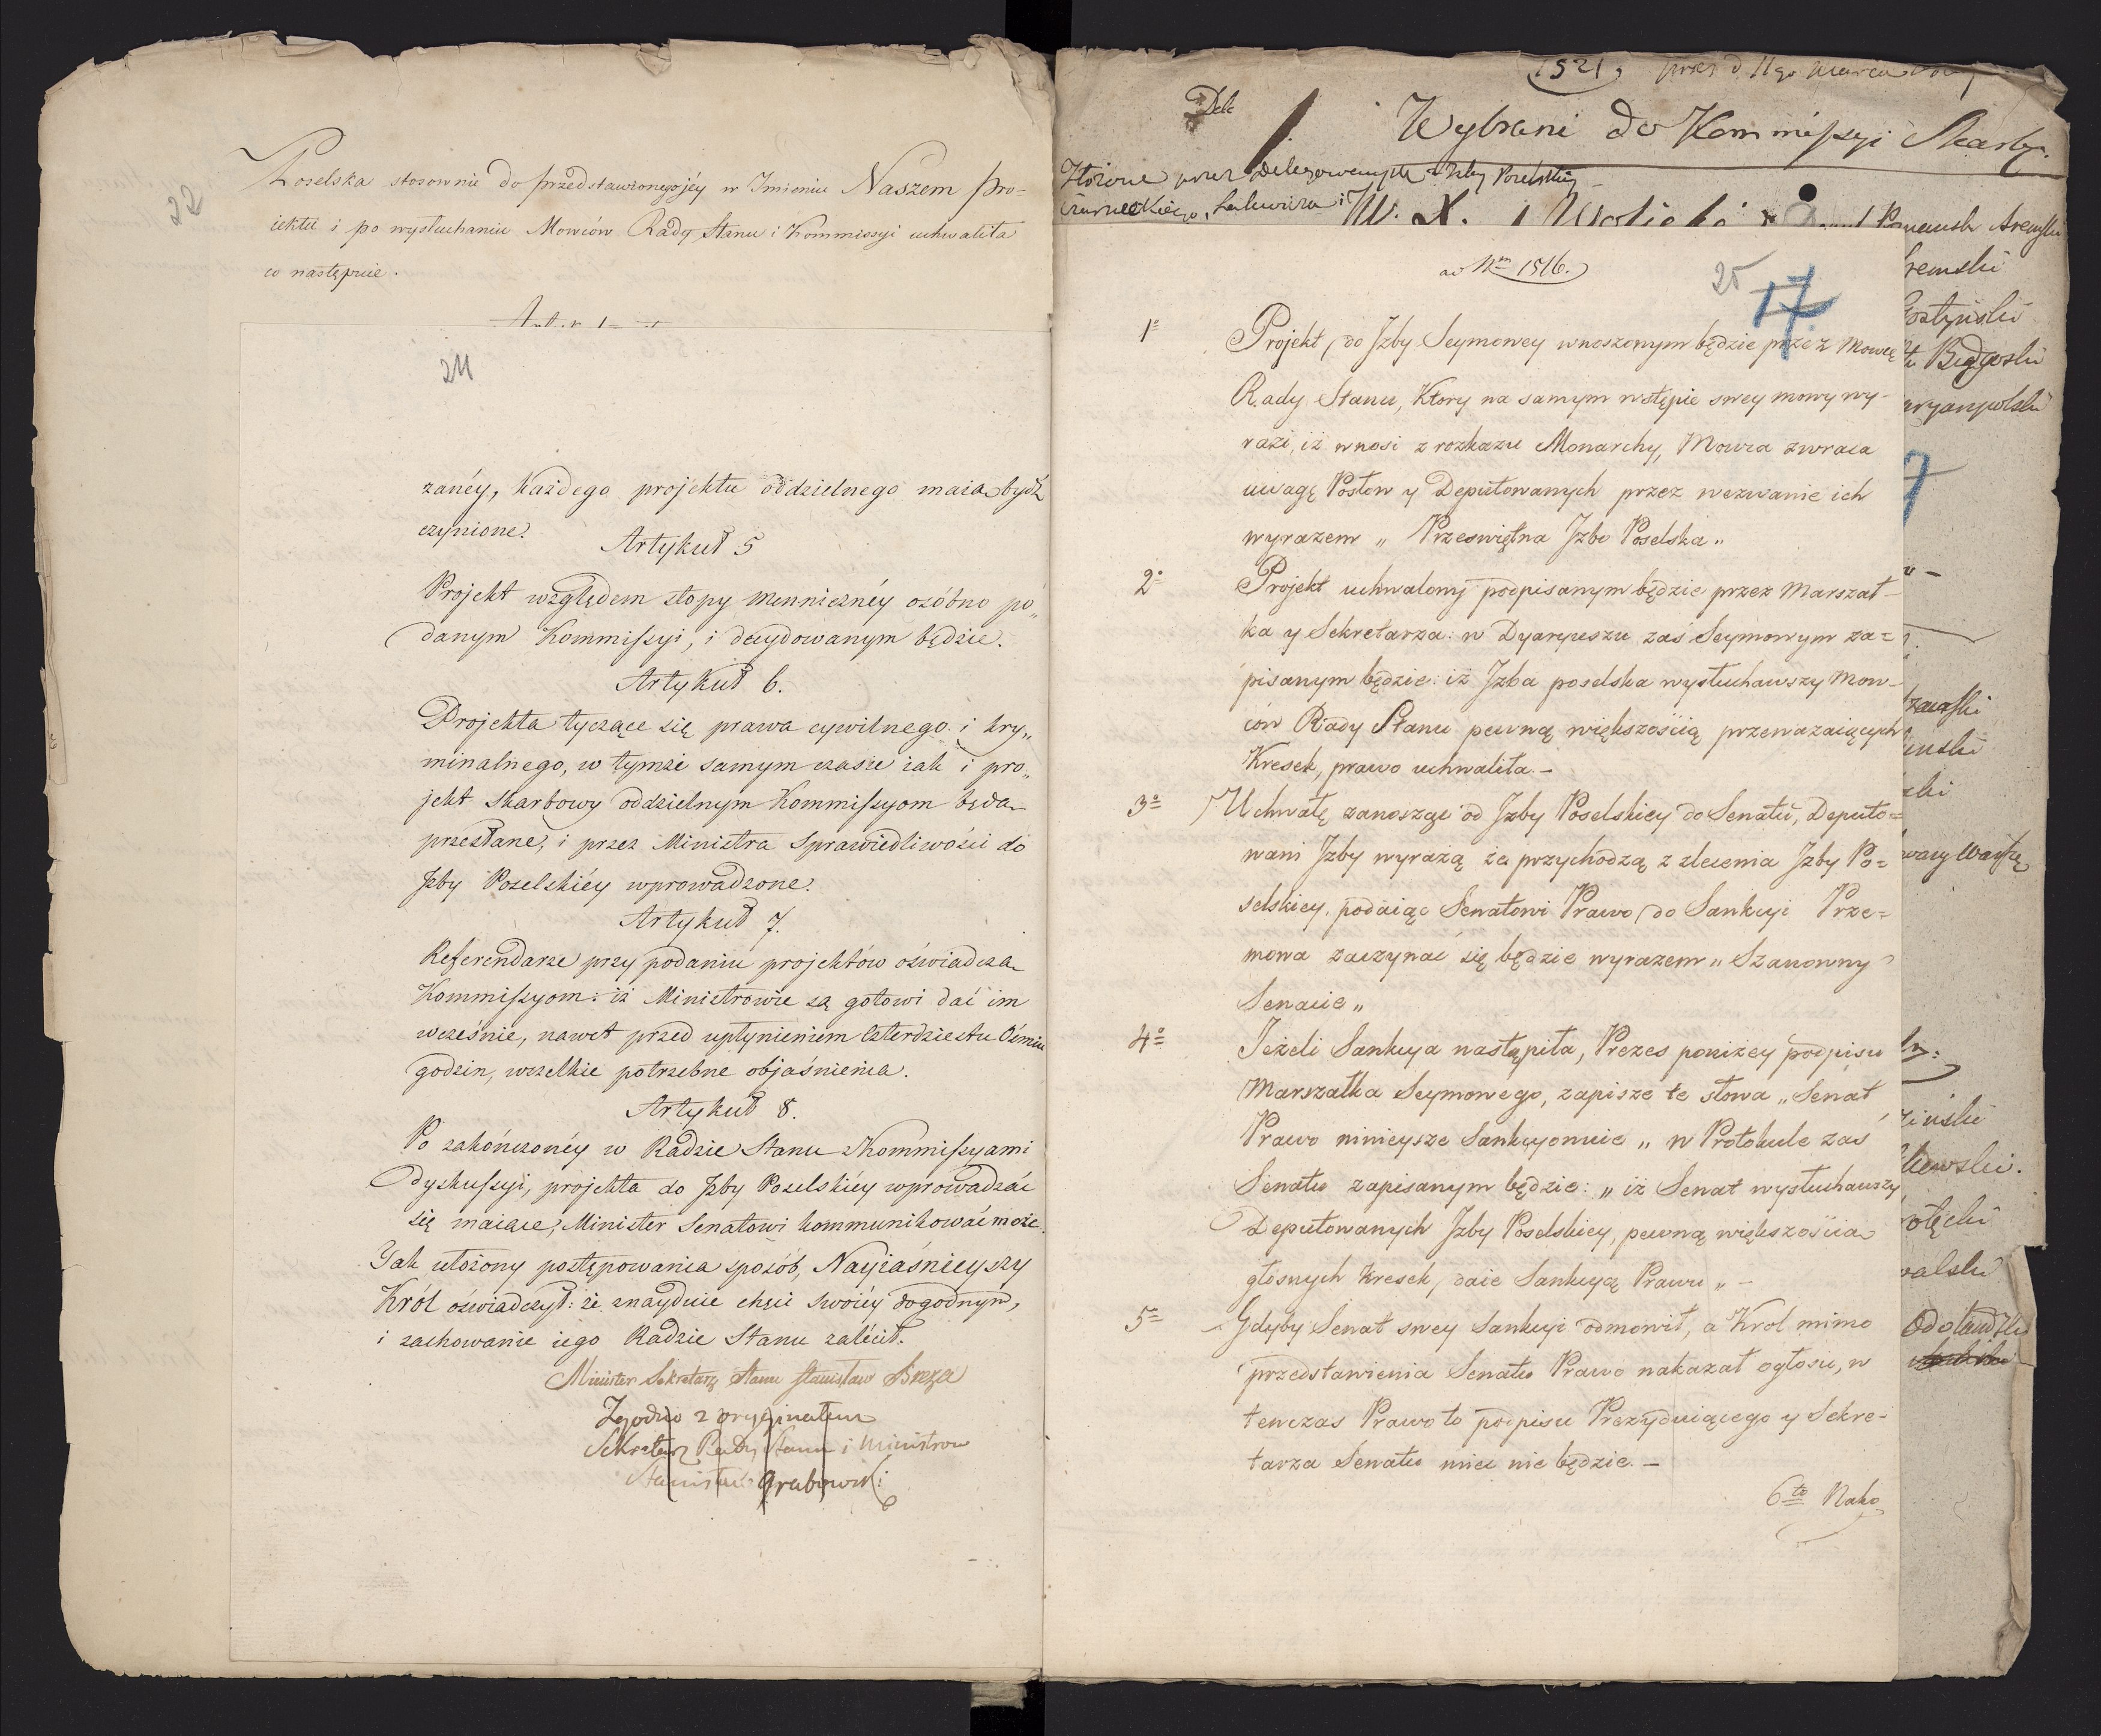 22
Poselska stosownie do przedstawionego jéy w Imieniu Naszem pro-
iektu i po wysłuchaniu Mowców Rady Stanu i Kommissyi uchwaliła
co następuie.
24
zanéy, każdego projektu oddzielnego maią bydź
czynione.
Artykuł 5
Projekt względem stopy mennicznéy osóbno po„
danym Kommissyi, i decydowanym będzie.
Artykuł 6.
Projekta tyczące się prawa cywilnego i kry„
minalnego, w tymże samym czasie iak i pro„
jekt skarbowy oddzielnym Kommissyom będą
przesłane, i przez Ministra Sprawiedliwości do
Izby Poselskiéy wprowadzone.
Artykuł 7.
Referendarze przy podaniu projektów oświadczą
Kommissyom: iż Ministrowie są gotowi dać im
wcześnie, nawet przed upłynieniem Czterdziestu Ośmiu
godzin, wszelkie potrzebne objaśnienia.
Artykuł 8.
Po zakończonéy w Radzie Stanu z Kommissyami
dyskussyi, projekta do Izby Poselskiéy wprowadzać
się maiące, Minister Senatowi kommunikować może.
Jak ułożony postępowania sposób, Nayiaśnieyszy
Król oświadczył: że znayduie chęci swoiéy dogodnym,
i zachowanie iego Radzie Stanu zalécił.
Minister Sekretarz Stanu Stanisław Breza
Zgodno z oryginałem
Sekretarz Rady Stanu i Ministrow
Stanisław Grabowski
1521, d. 11go Marca
Dele
Wybrani do Kommissyi Skarby.
Złożone przez Delegowanych z Izby Poselskiey
W. X.
ad Nrm 1516.
25
17
1o
Projekt do Jzby Seymowey wnoszonym będzie przez Mowcę
Rady Stanu, Ktory na samym wstępie swey mowy wy-
razi, iż wnosi z rozkazu Monarchy, Mowca zwraca
uwagę Posłow y Deputowanych przez wezwanie ich
wyrazem „ Przeswiętna Jzbo Poselska „
2o
Projekt uchwalony podpisanym będzie przez Marszał-
ka y Sekretarza: w Dyaryuszu zaś Seymowym za=
pisanym będzie: iż Jzba poselska wysłuchawszy Mow-
ców Rady Stanu pewną większością przeważaiących
Kresek, prawo uchwaliła. –
3o
Uchwałę zanosząc od Jzby Poselskiey do Senatu, Deputo=
wani Jzby wyrażą że przychodzą z zlecenia Jzby Po=
selskiey, podaiąc Senatowi Prawo do Sankcyi Prze=
mowa zaczynać się będzie wyrazem „ Szanowny
Senacie „
4o
Jeżeli Sankcya nastąpiła, Prezes poniżey podpisu
Marszałka Seymowego, zapisze te słowa „ Senat
Prawo ninieysze Sankcyonuie „ w Protokule zaś
Senatu zapisanym będzie: „ iż Senat wysłuchawszy
Deputowanych Jzby Poselskiey, pewną większością
głosnych Kresek, daie Sankcyą Prawu „ –
5o
Gdyby Senat swey Sankcyi odmowił, a Krol mimo
przedstawienia Senatu Prawo nakazał ogłosić, w
tenczas Prawo to podpisu Prezyduiącego y Sekre-
tarza Senatu mieć nie będzie. –
6to Nako